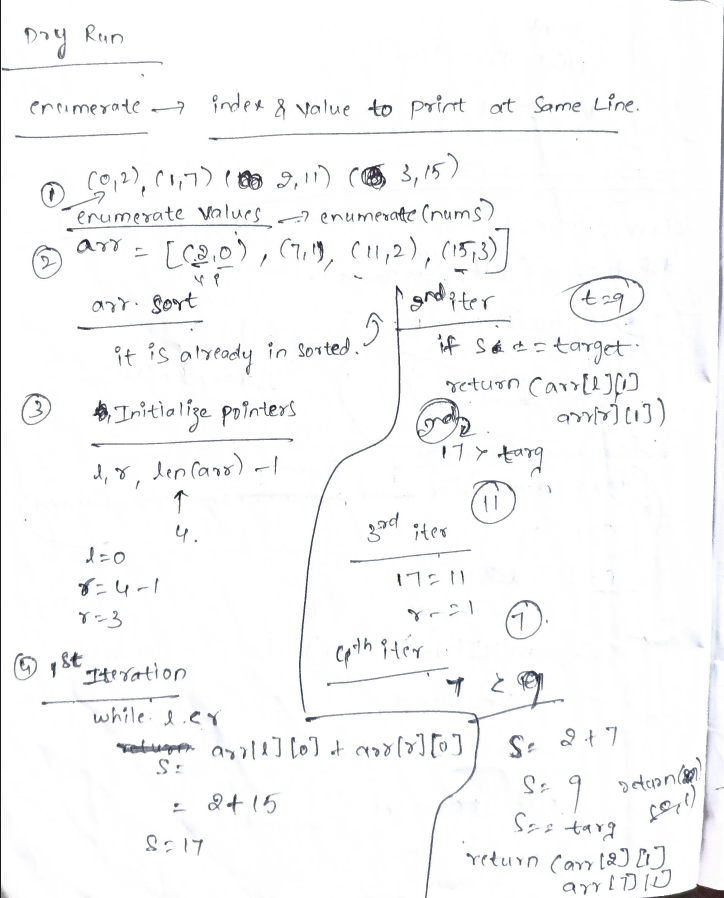 Dry Run
enumerate → index & value to print at Same Line.
① (0,2), (1,7) ( 2,11) ( 3,15)
enumerate values → enumerate (nums)
② arr = [(2,0), (7,1), (11,2), (15,3)]
arr. sort
it is already in sorted.
③ Initialize pointers
l, r, len(arr) -1
↑
4.
l=0
r=4-1
r=3
④ 1st Iteration
while l<r
S= arr[l][0] + arr[r][0]
= 2+15
S=17
2nd iter t=9
if S == target.
return (arr[l][1]
arr[r][1])
17 > targ
11
3rd iter
17=11
r-=1
7.
4th iter
S= 2+7
S= 9 return
S== targ
return (arr[2][1]
arr[1][1]